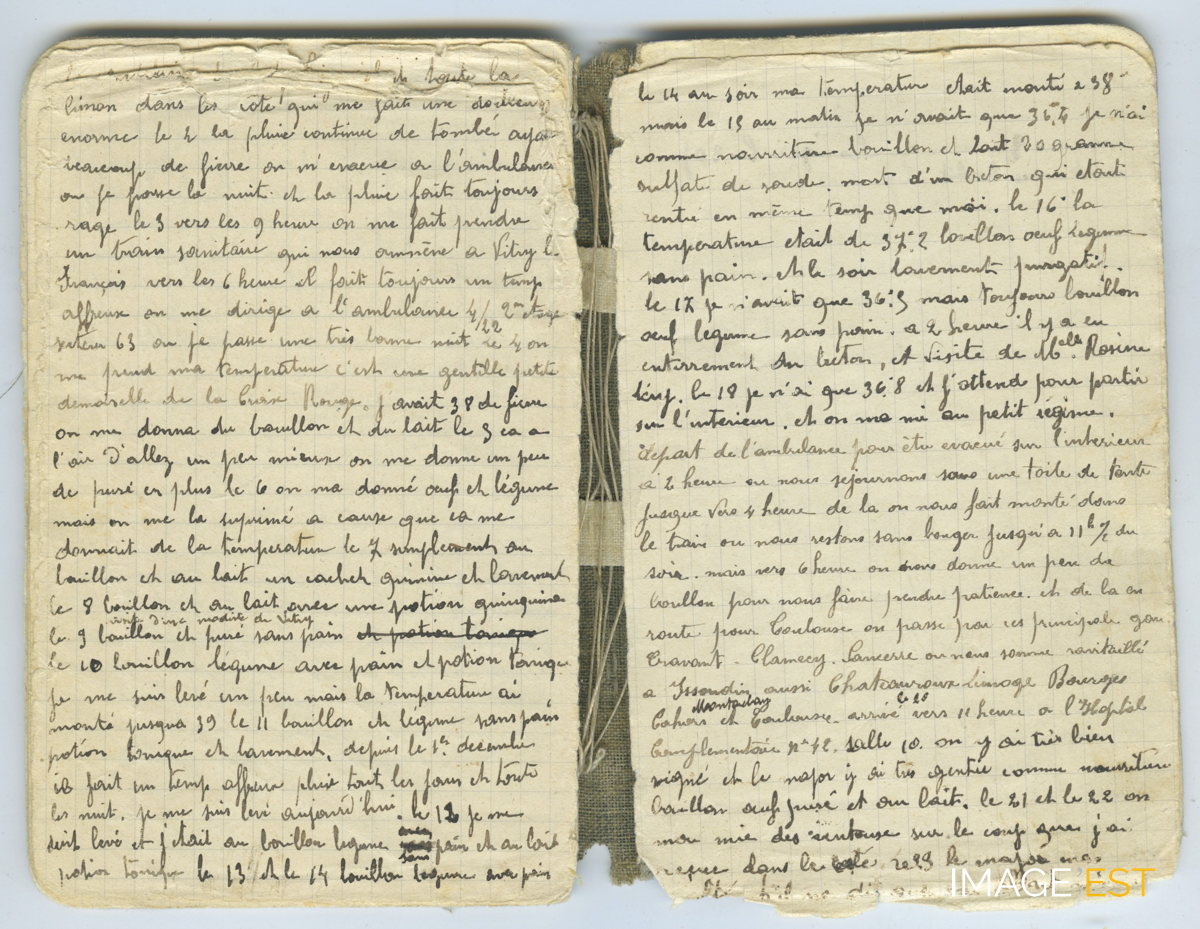 et toute la
limon dans les coté qui me fait une douleur
enorme le 2 la pluie continue de tombé aya
beaucoup de fievre on m'evacue a l'ambulance
ou je passe la nuit et la pluie fait toujours
rage le 3 vers les 9 heure on me fait prendre
un train sanitaire qui nous ammène a Vitry l.
François vers les 6 heure il fait toujours un temp
affreux on me dirige a l'ambulance 4/22 2me etage
63 ou je passe une très bonne nuit Le 4 on
me prend ma temperature c'est une gentille petite
demoiselle de la Croix Rouge. j'avait 38 de fievre
on me donna du bouillon et du lait le 5 ca a
l'air d'allez un peu mieux on me donne un peu
de puré en plus le 6 on ma donné oeuf et légume
mais on me la suprimé a cause que ca me
donnait de la temperature le 7 simplement au
bouillon et au lait un cachet quinine et lavement
le 8 bouillon et au lait avec une potion quinquina
visite d'une modiste de Vitry
le 9 bouillon et puré sans pain et potion tonique
le 10 bouillon légume avec pain et potion tonique
je me suis levé un peu mais la temperature ai
monté jusqua 39 le 11 bouillon et légume sans pain
potion tonique et lavement, depuis le 1er decembre
il fait un temp affreux pluie tout les jours et toute
les nuit. je me suis levé aujourd'hui. le 12 je me
suit levé et j'était au bouillon legume sans pain et au lait
potion tonique le 13 et le 14 bouillon legume avec pain
le 14 au soir ma temperature etait monté a 38°
mais le 15 au matin je n'avait que 36,4 je n'ai
comme nourriture bouillon et lait 30 gramme
sulfate de soude. mort d'un breton qui etait
rentré en même temp que moi. le 16 la
temperature etait de 37°2 bouillon oeuf legume
sans pain. et le soir lavement purgatif.
le 17 je n'avait que 36°5 mais toujours bouillon
oeuf legume sans pain. a 2 heure il y a eu
enterrement du breton, et visite de Melle Rosine
Lévy. le 18 je n'ai que 36°8 et j'attend pour partir
sur l'interieur. et on ma mi au petit régime.
Départ de l'ambulance pour être evacué sur l'interieur
à 2 heure ou nous sejournons sous une toile de tente
jusque vers 4 heure de la on nous fait monté dans
le train ou nous restons sans bouger jusqu'à 11h ½ du
soir. mais vers 6 heure on nous donne un peu de
bouillon pour nous faire prendre patience. et de la en
route pour Toulouse on passe par ces principale gare
Cravant. Clamecy. Sancerre ou nous somme ravitaillé
a Issoudin aussi Chateauroux Limoge Bourges
Montauban le 20
Cahors et Toulouse arrivé vers 11 heure a l'Hopital
Complementaire n° 42. salle 10. on y ai très bien
soigné et le major y ai tres gentil comme nourriture
bouillon oeuf puré et au lait. le 21 et le 22 on
ma mie des ventouse sur le coup que j'ai
reçue dans le coté le 23 le major ma
IMAGE EST